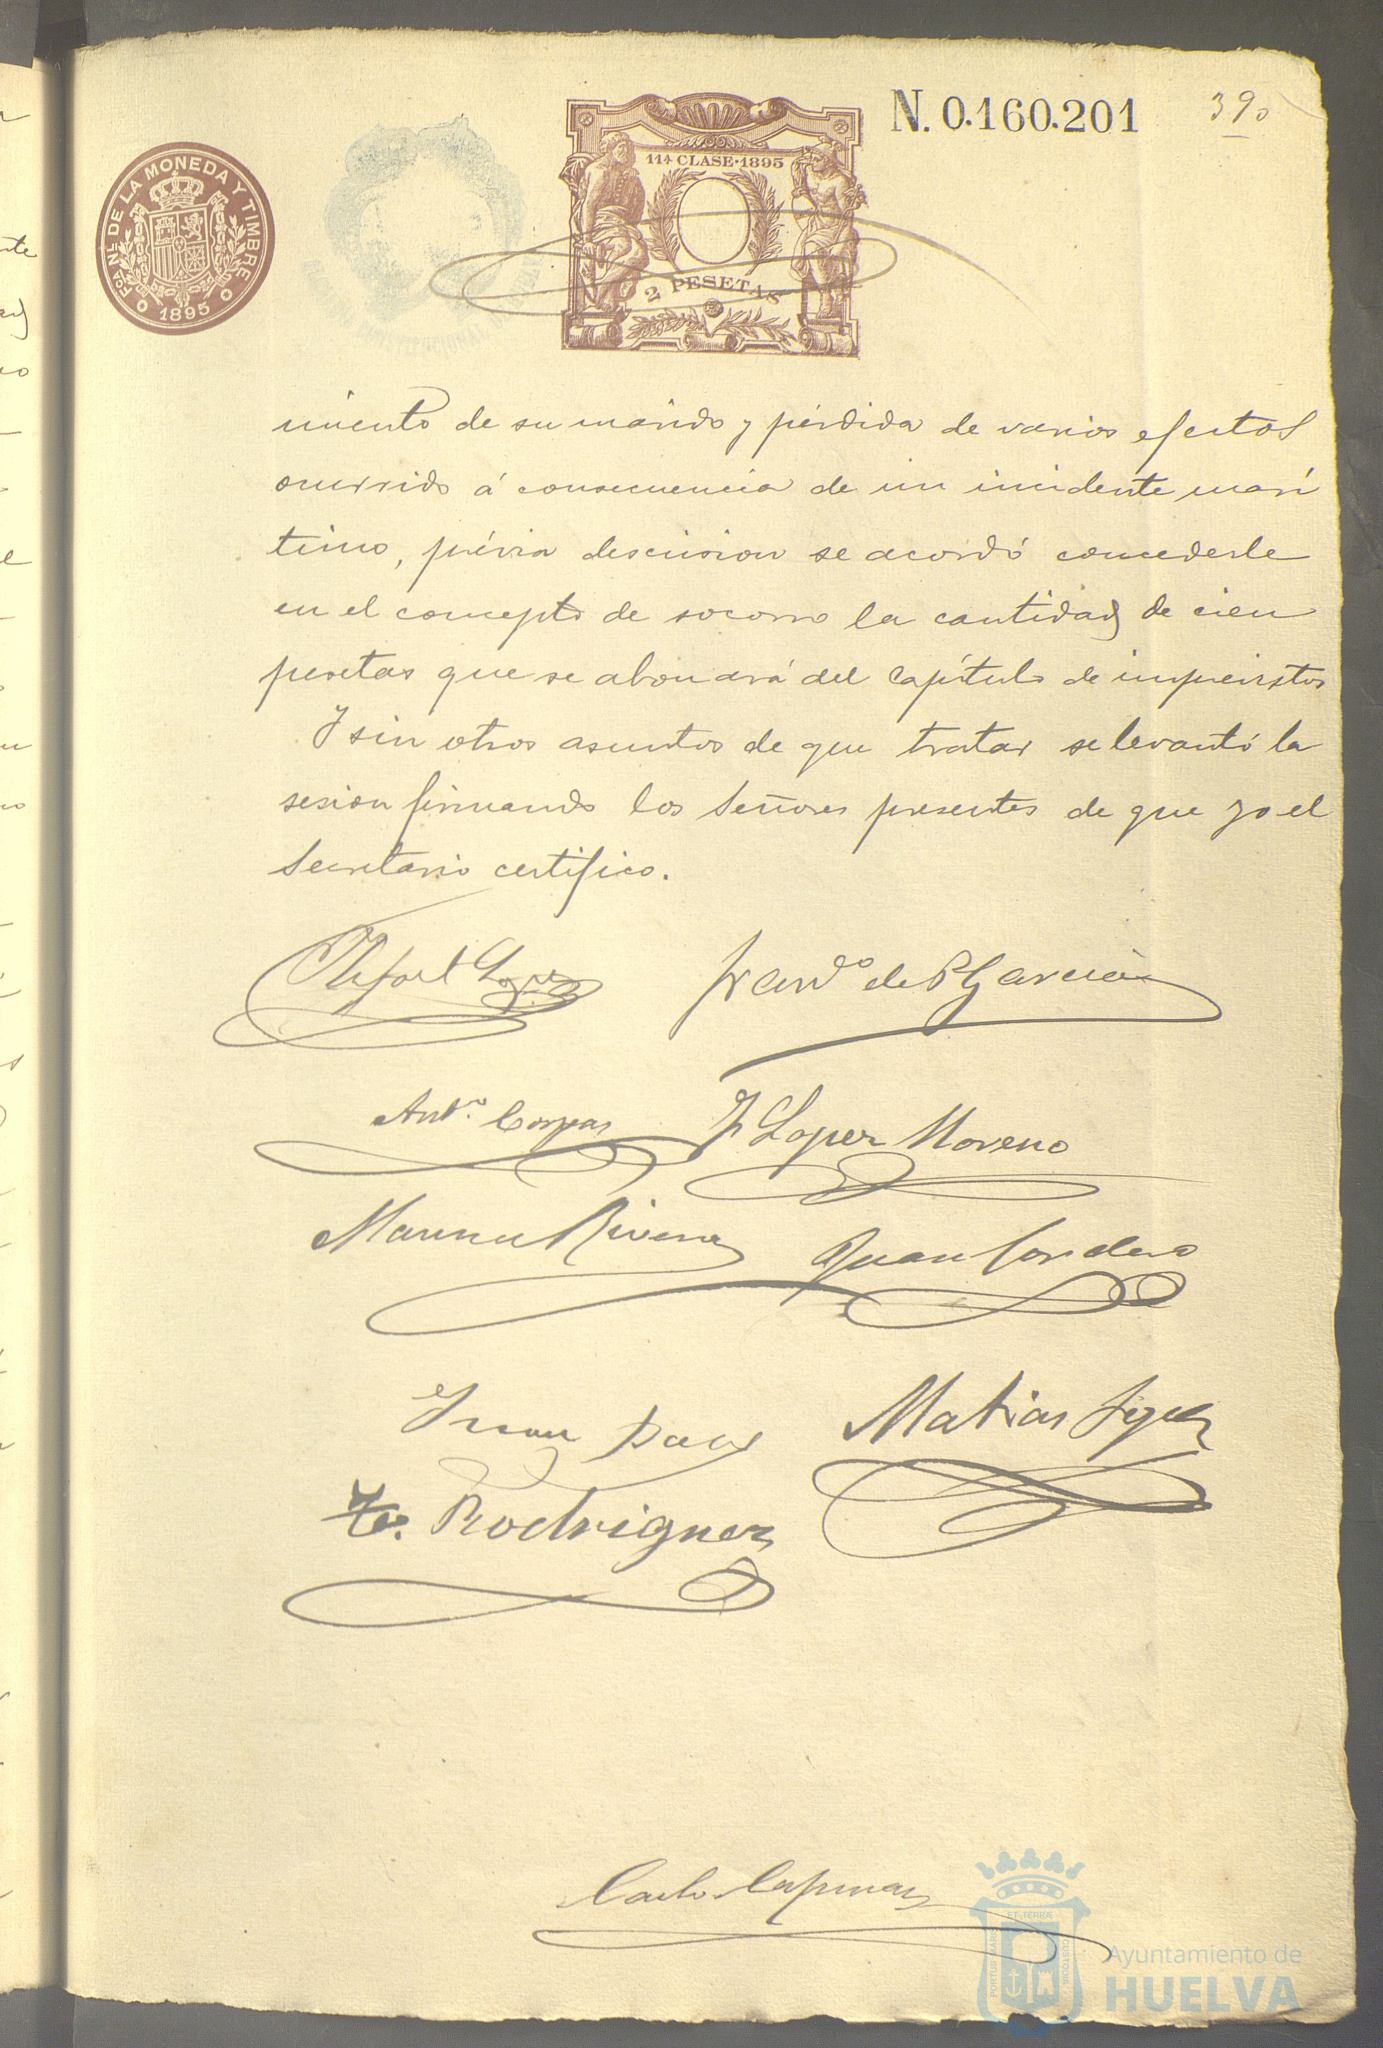 N. 0.160.201
390
FCA. NL. DE LA MONEDA Y TIMBRE
1895
11ª CLASE·1895
2 PESETAS
miento de su marido y pérdida de varios efectos
ocurrido á consecuencia de un incidente marí
timo, prévia descusion se acordó concederle
en el concepto de socorro la cantidad de cien
pesetas que se abonará del Capítulo de imprevistos
Y sin otros asuntos de que tratar se levantó la
sesion firmando los Señores presentes de que yo el
Secretario certifico.
Rafael Lopez
Franco de P García
Anto. Corpas
F Lopez Moreno
Manuel Rivera
Juan Cordero
Juan
Matias
Rodriguez
Carlos
PORTUS MARIS ET TERRÆ CUSTODIA
Ayuntamiento de
HUELVA